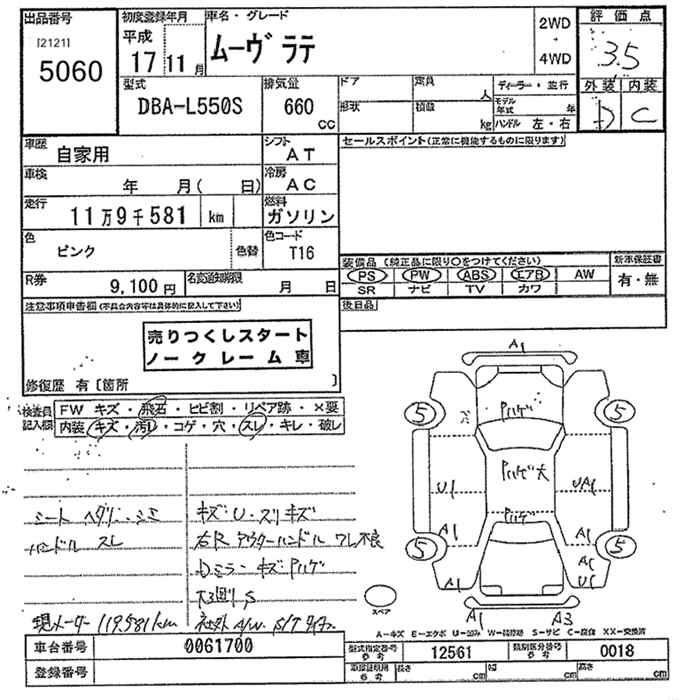 出品番号
[2121]
5060
初度登録年月
平成
17 11 月
車名・グレード
ムーヴ ラテ
2WD
・
4WD
評価点
3.5
外装 内装
D C
型式
DBA-L550S
排気量
660
cc
ドア
形状
定員
人
積載
kg
ディーラー・並行
モデル年式 年
ハンドル 左・右
車歴
自家用
シフト
AT
車検
年 月( 日)
冷房
AC
走行
11万9千581 km
燃料
ガソリン
色
ピンク
色替
色コード
T16
R券
9,100円
名変通知期限
月 日
セールスポイント(正常に機能するものに限ります)
装備品(純正品に限り○をつけてください)
PS PW ABS エアB AW
SR ナビ TV カワ
新車保証書
有・無
後日品
注意事項申告欄(不具合内容等は具体的に記入して下さい)
売りつくしスタート
ノークレーム車
修復歴 有〔箇所 〕
検査員
記入欄
FW キズ・飛石・ヒビ割・リペア跡・×要
内装・キズ・汚レ・コゲ・穴・スレ・キレ・破レ
シート ヘタリ・シミ
ハンドル スレ
現メーター 119,581km
キズ・U・スリキズ
右R アウターハンドル ワレ 不良
Dミラー キズ Pハゲ
社外 A/W S/T タイヤ
A1
Pハゲ
5 5
Pハゲ大
U1 UA1
Pハゲ
A1 A1
5 5
A1 A1
U1
スペア
A1 A3
A-キズ E-エクボ U-凹み W-補修跡 S-サビ C-腐食 XX-交換済
車台番号
0061700
登録番号
型式指定番号
参考
12561
類別区分番号
参考
0018
車庫証明用
参考
長さ cm
幅 cm
高さ cm